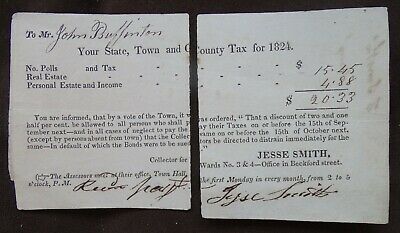 To Mr. John Buffinton
Your State, Town and County Tax for 1824.
No. Polls and Tax
Real Estate - - - - - $ 15.45
Personal Estate and Income - - - - 4.88
$ 20.33
You are informed, that by a vote of the Town, it was ordered, "That a discount of two and one
half per cent. be allowed to all persons who shall pay their Taxes on or before the 15th of Sep-
tember next—and in all cases of neglect to pay the same on or before the 15th of October next,
(except by persons absent from town) that the Collectors be directed to distrain immediately for the
same—In default of which the Bonds were to be sued
JESSE SMITH,
Collector for Wards No. 3 & 4—Office in Beckford street.
The Assessors meet at their office, Town Hall, the first Monday in every month, from 2 to 5
o'clock, P. M.
Jesse Smith